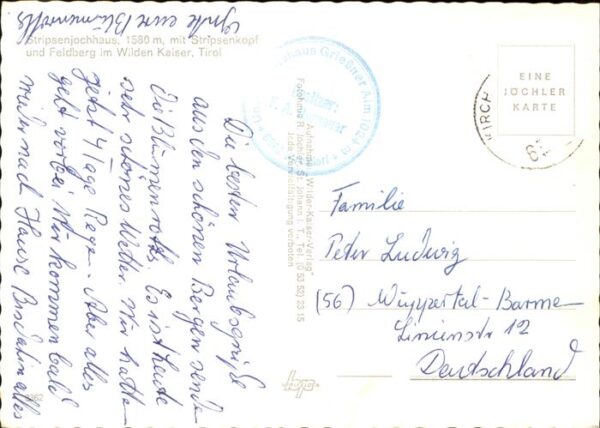 Stripsenjochhaus, 1580 m, mit Stripsenkopf
und Feldberg im Wilden Kaiser, Tirol
Die besten Urlaubsgrüße
aus den schönen Bergen sende
Die Blümenrotts. Es ist heute
sehr schönes Wetter. Wir hatte
jetzt 4 Tage Regen. Aber alles
geht vorbei. Wir kommen bald
mehr nach Hause. Bis dahin alles
eure Blümenrotts
Griesner Alm 1024 m
Aufnahme u. "Wilder-Kaiser-Verlag"
Fotohaus R. Jöchler, St. Johann i. T., Tel. (0 53 52) 23 15
Jede Vervielfältigung verboten
EINE
JÖCHLER
KARTE
KIRCH
Familie
Peter Ludwig
(56) Wuppertal-Barme
Linienstr 12
Deutschland